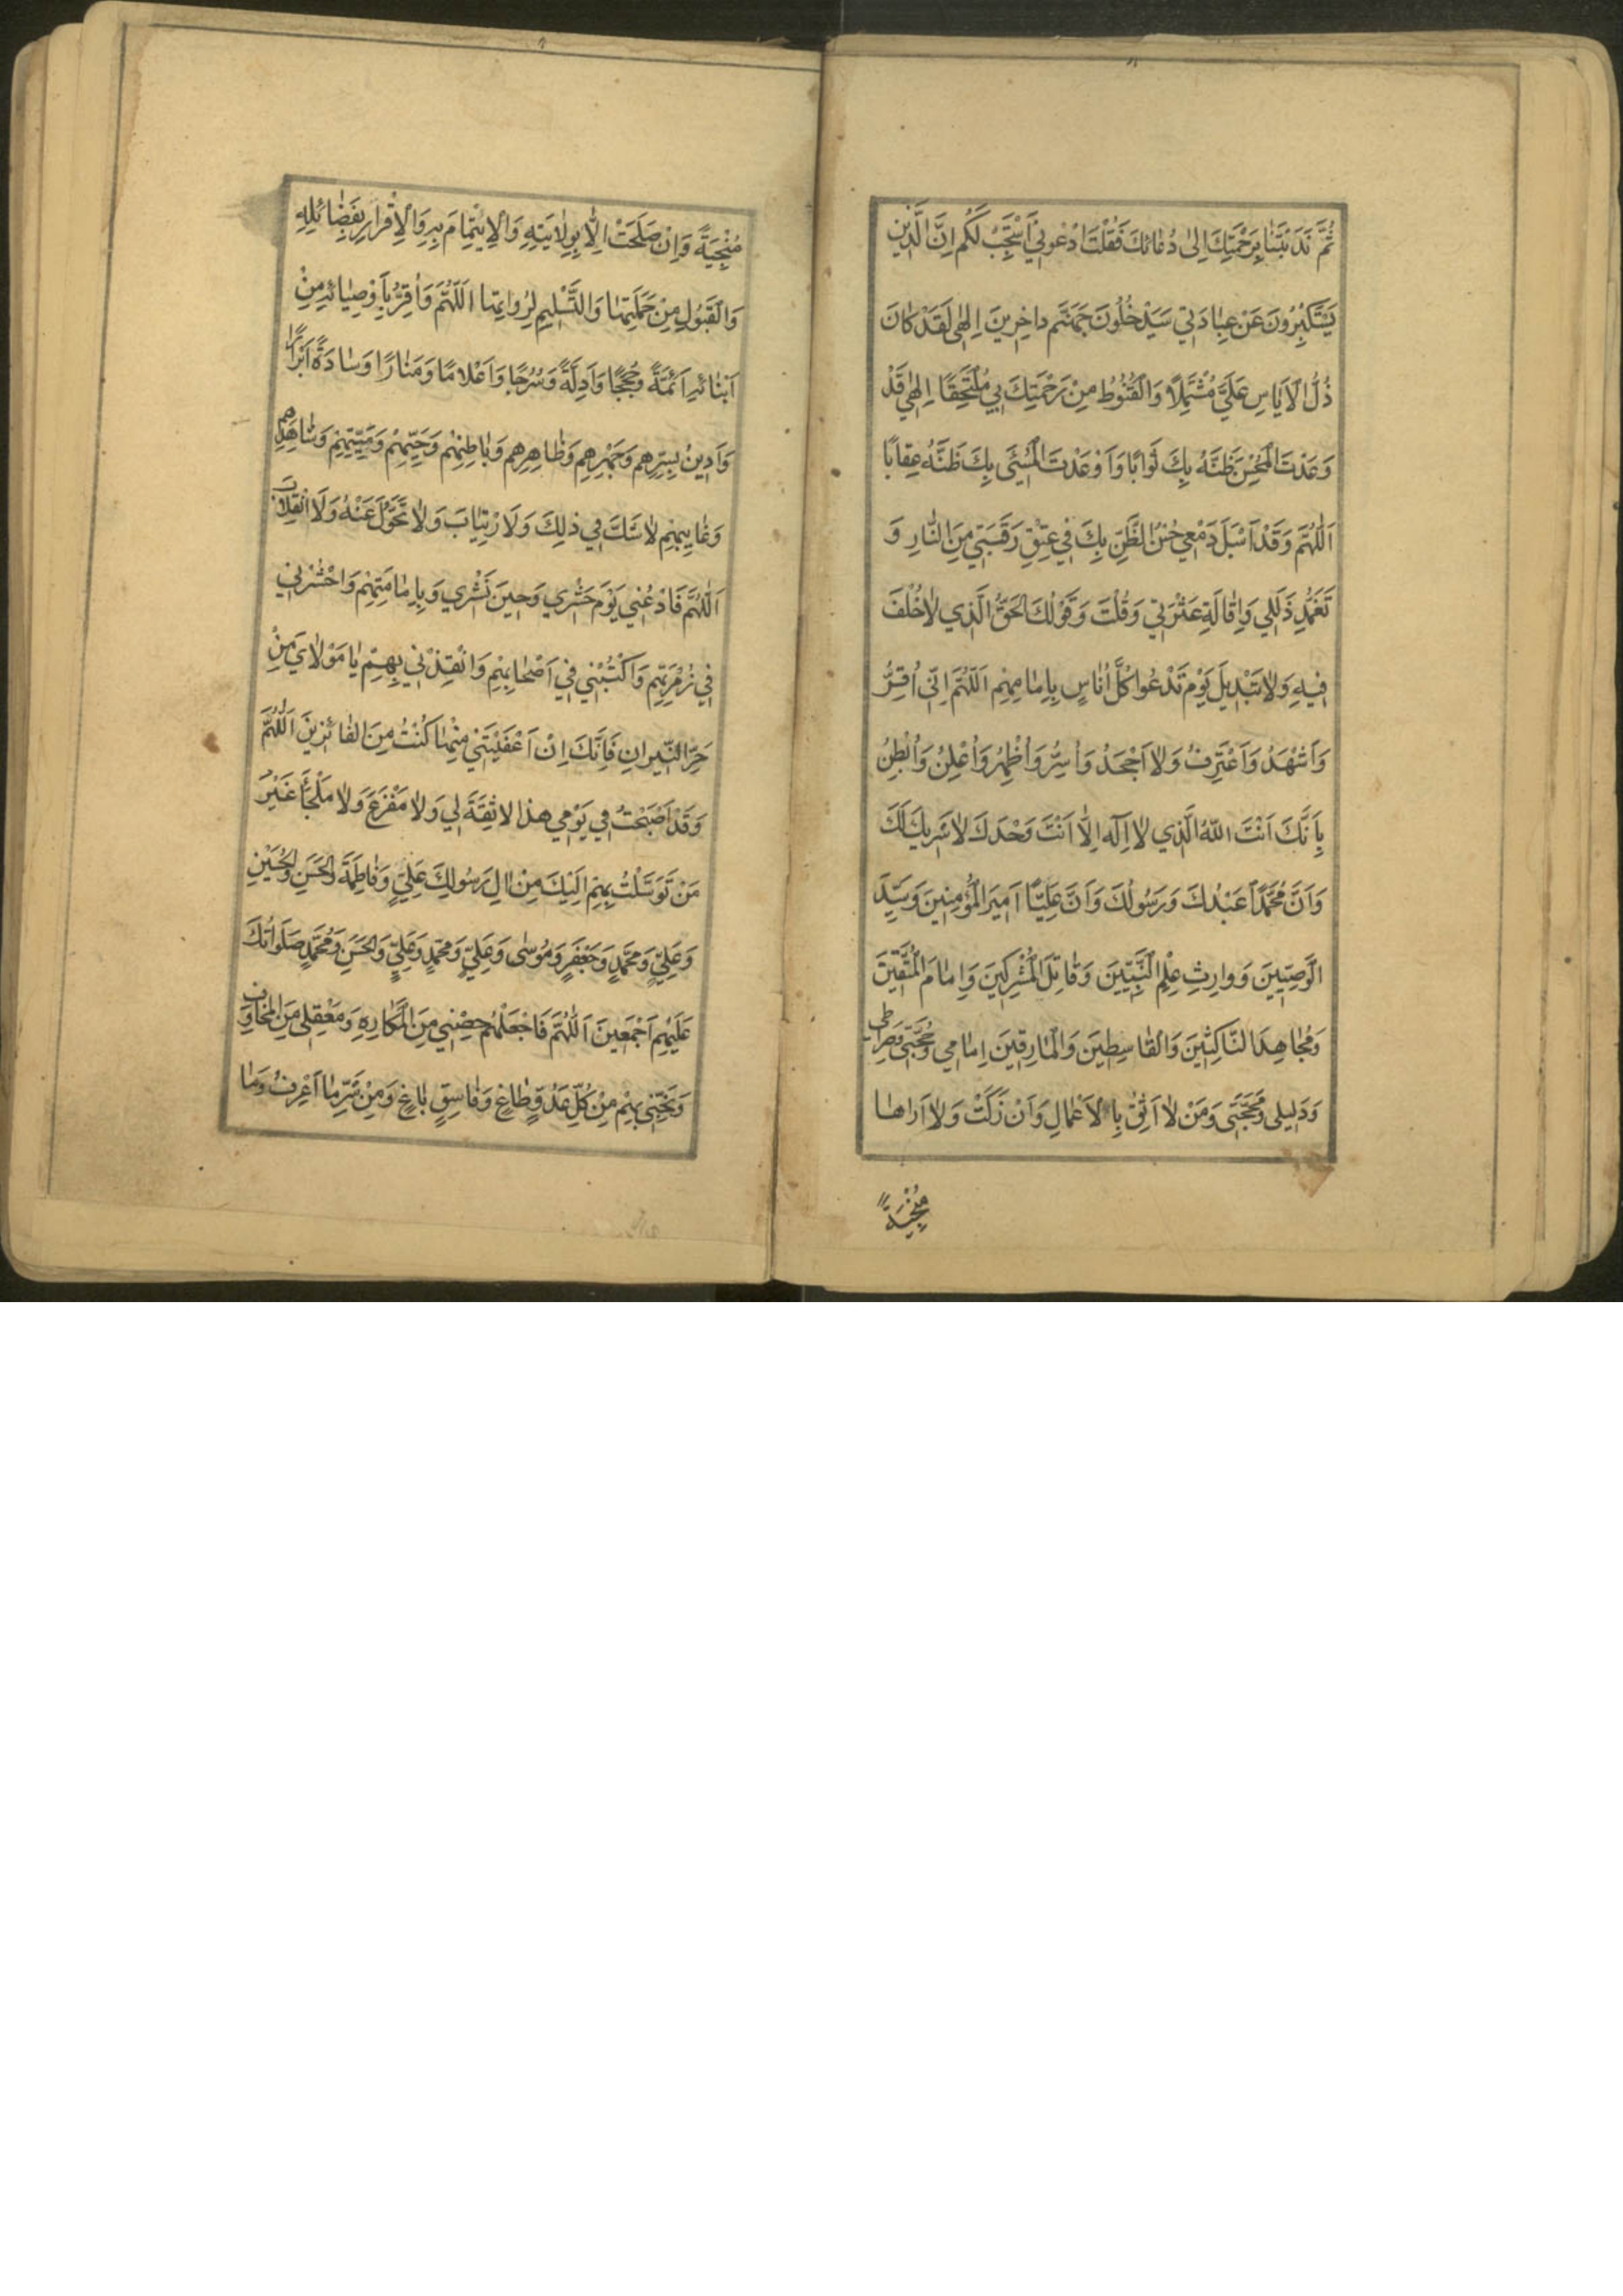 ثُمَّ نَدَبْتَنٰا بِرَحْمَتِكَ اِلىٰ دُعٰائِكَ فَقُلْتَ ادْعُونِي اَسْتَجِبْ لَكُم اِنَّ الَّذِينَ
يَسْتَكْبِرُونَ عَنْ عِبٰادَتِي سَيَدْخُلُونَ جَهَنَّم داخِرِينَ اِلهٰى لَقَدْ كٰانَ
ذُلُّ الْاَيٰاسِ عَلَيَّ مُشْتَمِلًا وَالْقُنُوطُ مِنْ رَحْمَتِكَ بِي مُلْتَحِقًا اِلهٰي قَدْ
وَعَدْتَ الْمُحْسِنَ ظَنَّهُ بِكَ ثَوٰابًا وَاَوْعَدْتَ الْمُسْئَى بِكَ ظَنَّهُ عِقٰابًا
اَللّٰهُمَّ وَقَدْ اَسْبَلَ دَمْعِي حُسْنُ الظَّنِّ بِكَ فِي عِتْقِ رَقَبَتِي مِنَ النّٰارِ وَ
تَغَمُّدِ ذَلَلِي وَاِقٰالَةِ عَثْرَتِي وَقُلْتَ وَقَوْلُكَ الْحَقُّ الَّذِي لاٰ خُلْفَ
فِيهِ وَلاٰ تَبْدِيلَ يَوْمَ تَدْعُوا كُلَّ اُنٰاسٍ بِاِمٰامِهِم اَللّٰهُمَّ اِنّي اُقِرُّ
وَاَشْهَدُ وَاَعْتَرِفُ وَلاٰ اَجْحَدُ وَاُسِرُّ وَاُظْهِرُ وَاُعْلِنُ وَاُبْطِنُ
بِاَنَّكَ اَنْتَ اللهُ الَّذِي لاٰ اِلٰهَ اِلّٰا اَنْتَ وَحْدَكَ لاٰ شَرِيكَ لَكَ
وَاَنَّ مُحَمَّدًا عَبْدُكَ وَرَسُولُكَ وَاَنَّ عَلِيًّا اَمِيرَ الْمُؤْمِنِينَ وَسَيِّدَ
الْوَصِيّينَ وَوارِثِ عِلْمِ النَّبِيّينَ وَقٰاتِلَ الْمُشْرِكِينَ وَاِمٰامَ الْمُتَّقِينَ
وَمُجٰاهِدَ النّٰاكِثِينَ وَالْقٰاسِطِينَ وَالْمٰارِقِينَ اِمٰامِي وَحُجَّتِي وَصِرٰاطِي
وَدَلِيلِى وَمَحَجَّتِى وَمَنْ لاٰ اَثِقُ بِالْاَعْمٰالِ وَاَنْ زَكَتْ وَلاٰ اَرٰاهٰا
مُنْجِيَةً
مُنْجِيَةً وَاِنْ صَلَحَتْ اِلّٰا بِوِلاٰيَتِهِ وَالْاِيتِمٰامَ بِهِ وَالْاِقْرٰارِ بِفَضٰائِلِهِ
وَالْقَبُولِ مِنْ حَمَلَتِهٰا وَالتَّسْلِيمِ لِرُواتِهٰا اَللّٰهُمَّ وَاُقِرُّ بِاَوْصِيٰائِهِ مِنْ
اَبْنٰائِهِ اَئِمَّةً وَحُجَجًا وَاَدِلَّةً وَسُرُجًا وَاَعْلامًا وَمَنٰارًا وَسٰادَةً اَبْرٰارًا
وَاَدِينُ بِسِرِّهِم وَجَهْرِهِم وَظٰاهِرِهِم وَبٰاطِنِهِمْ وَحَيِّهِمْ وَمَيِّتِهِمْ وَشٰاهِدِهِمْ
وَغٰايِبِهِم لاٰ شَكَّ فِي ذٰلِكَ وَلَا رْتِيٰابَ وَلاٰ تَحَوُّلَ عَنْهُ وَلَا انْقِلاٰبَ
اَللّٰهُمَّ فَادْعُنِي يَوْمَ حَشْرِي وَحِينَ نَشْرِي وَبِاِمٰامَتِهِمْ وَاحْشُرْنِي
فِي زُمْرَتِهِم وَاكْتُبْنِي فِي اَصْحٰابِهِمْ وَانْقِذْنِي بِهِمْ يٰا مَوْلاٰيَ مِنْ
حَرِّ النّيرانِ فَاِنَّكَ اِنْ اَعْفَيْتَنِي مِنْهٰا كُنْتُ مِنَ الفٰائِزِينَ اَللّٰهُمَّ
وَقَدْ اَصْبَحْتُ فِي يَوْمِي هذا لا ثِقَةَ لِي وَلاٰ مَفْزَعَ وَلاٰ مَلْجَأَ غَيْرُ
مَنْ تَوَسَّلْتُ بِهِمْ اِلَيْكَ مِنْ اٰلِ رَسُولِكَ عَلِيٍّ وَفٰاطِمَةَ وَالْحَسَنِ وَالْحُسَيْنِ
وَعَلِيٍّ وَمُحَمَّدٍ وَجَعْفَرٍ وَمُوسٰى وَعَلِيٍّ وَمُحَمَّدٍ وَعَلِيٍّ وَالْحَسَنِ وَمُحَمَّدٍ صَلَوٰاتُكَ
عَلَيْهِم اَجْمَعِينَ اَللّٰهُمَّ فَاجْعَلْهُمْ حِصْنِي مِنَ الْمَكٰارِهِ وَمَعْقِلِى مِنَ الْمَخٰاوِفِ
وَنَجِّنِي بِهِمْ مِنْ كُلِّ عَدُوٍّ طٰاغٍ وَفٰاسِقٍ بٰاغٍ وَمِنْ شَرِّ مٰا اَعْرِفُ وَمٰا